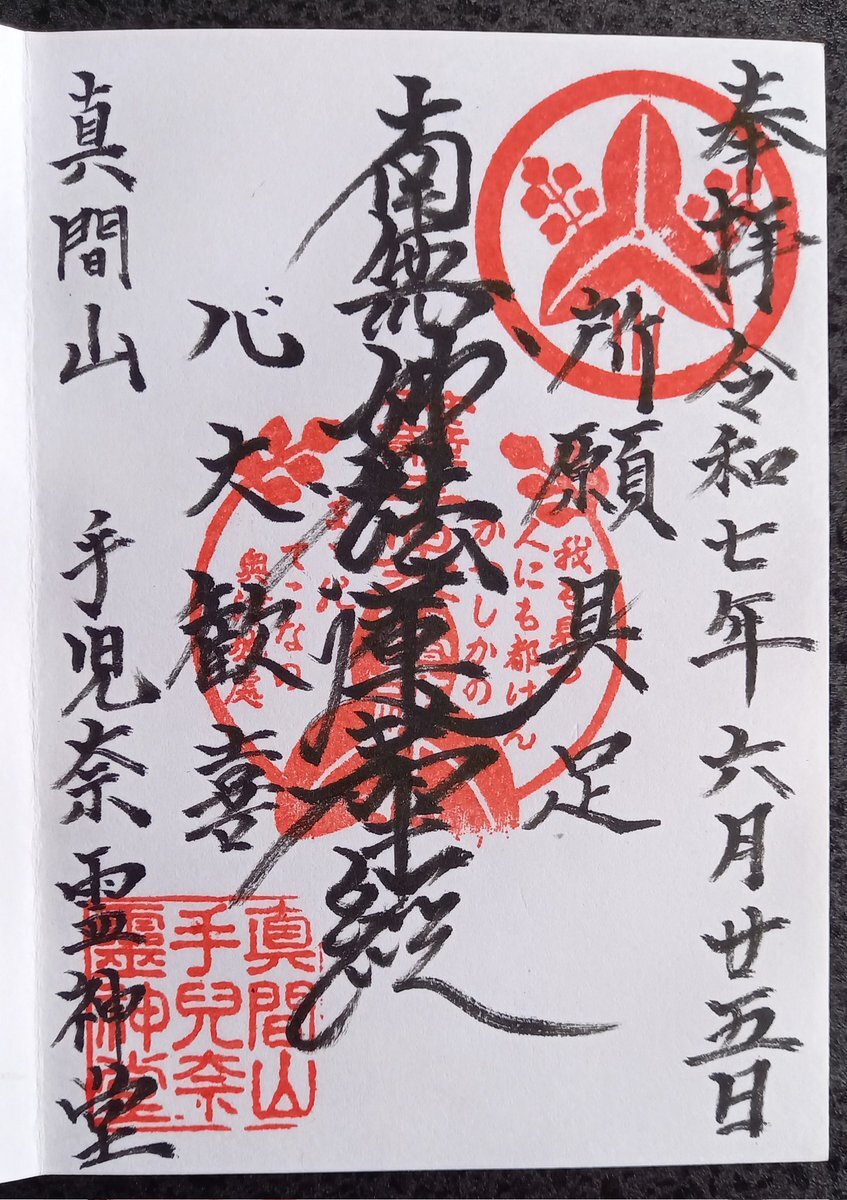 奉拝 令和七年六月廿五日
所願具足
南無妙法蓮華経
心大歓喜
真間山 手児奈霊神堂
我も見つ
人にも都げん
かつしかの
てこなの
奥津城處
真間山
手兒奈
靈神堂